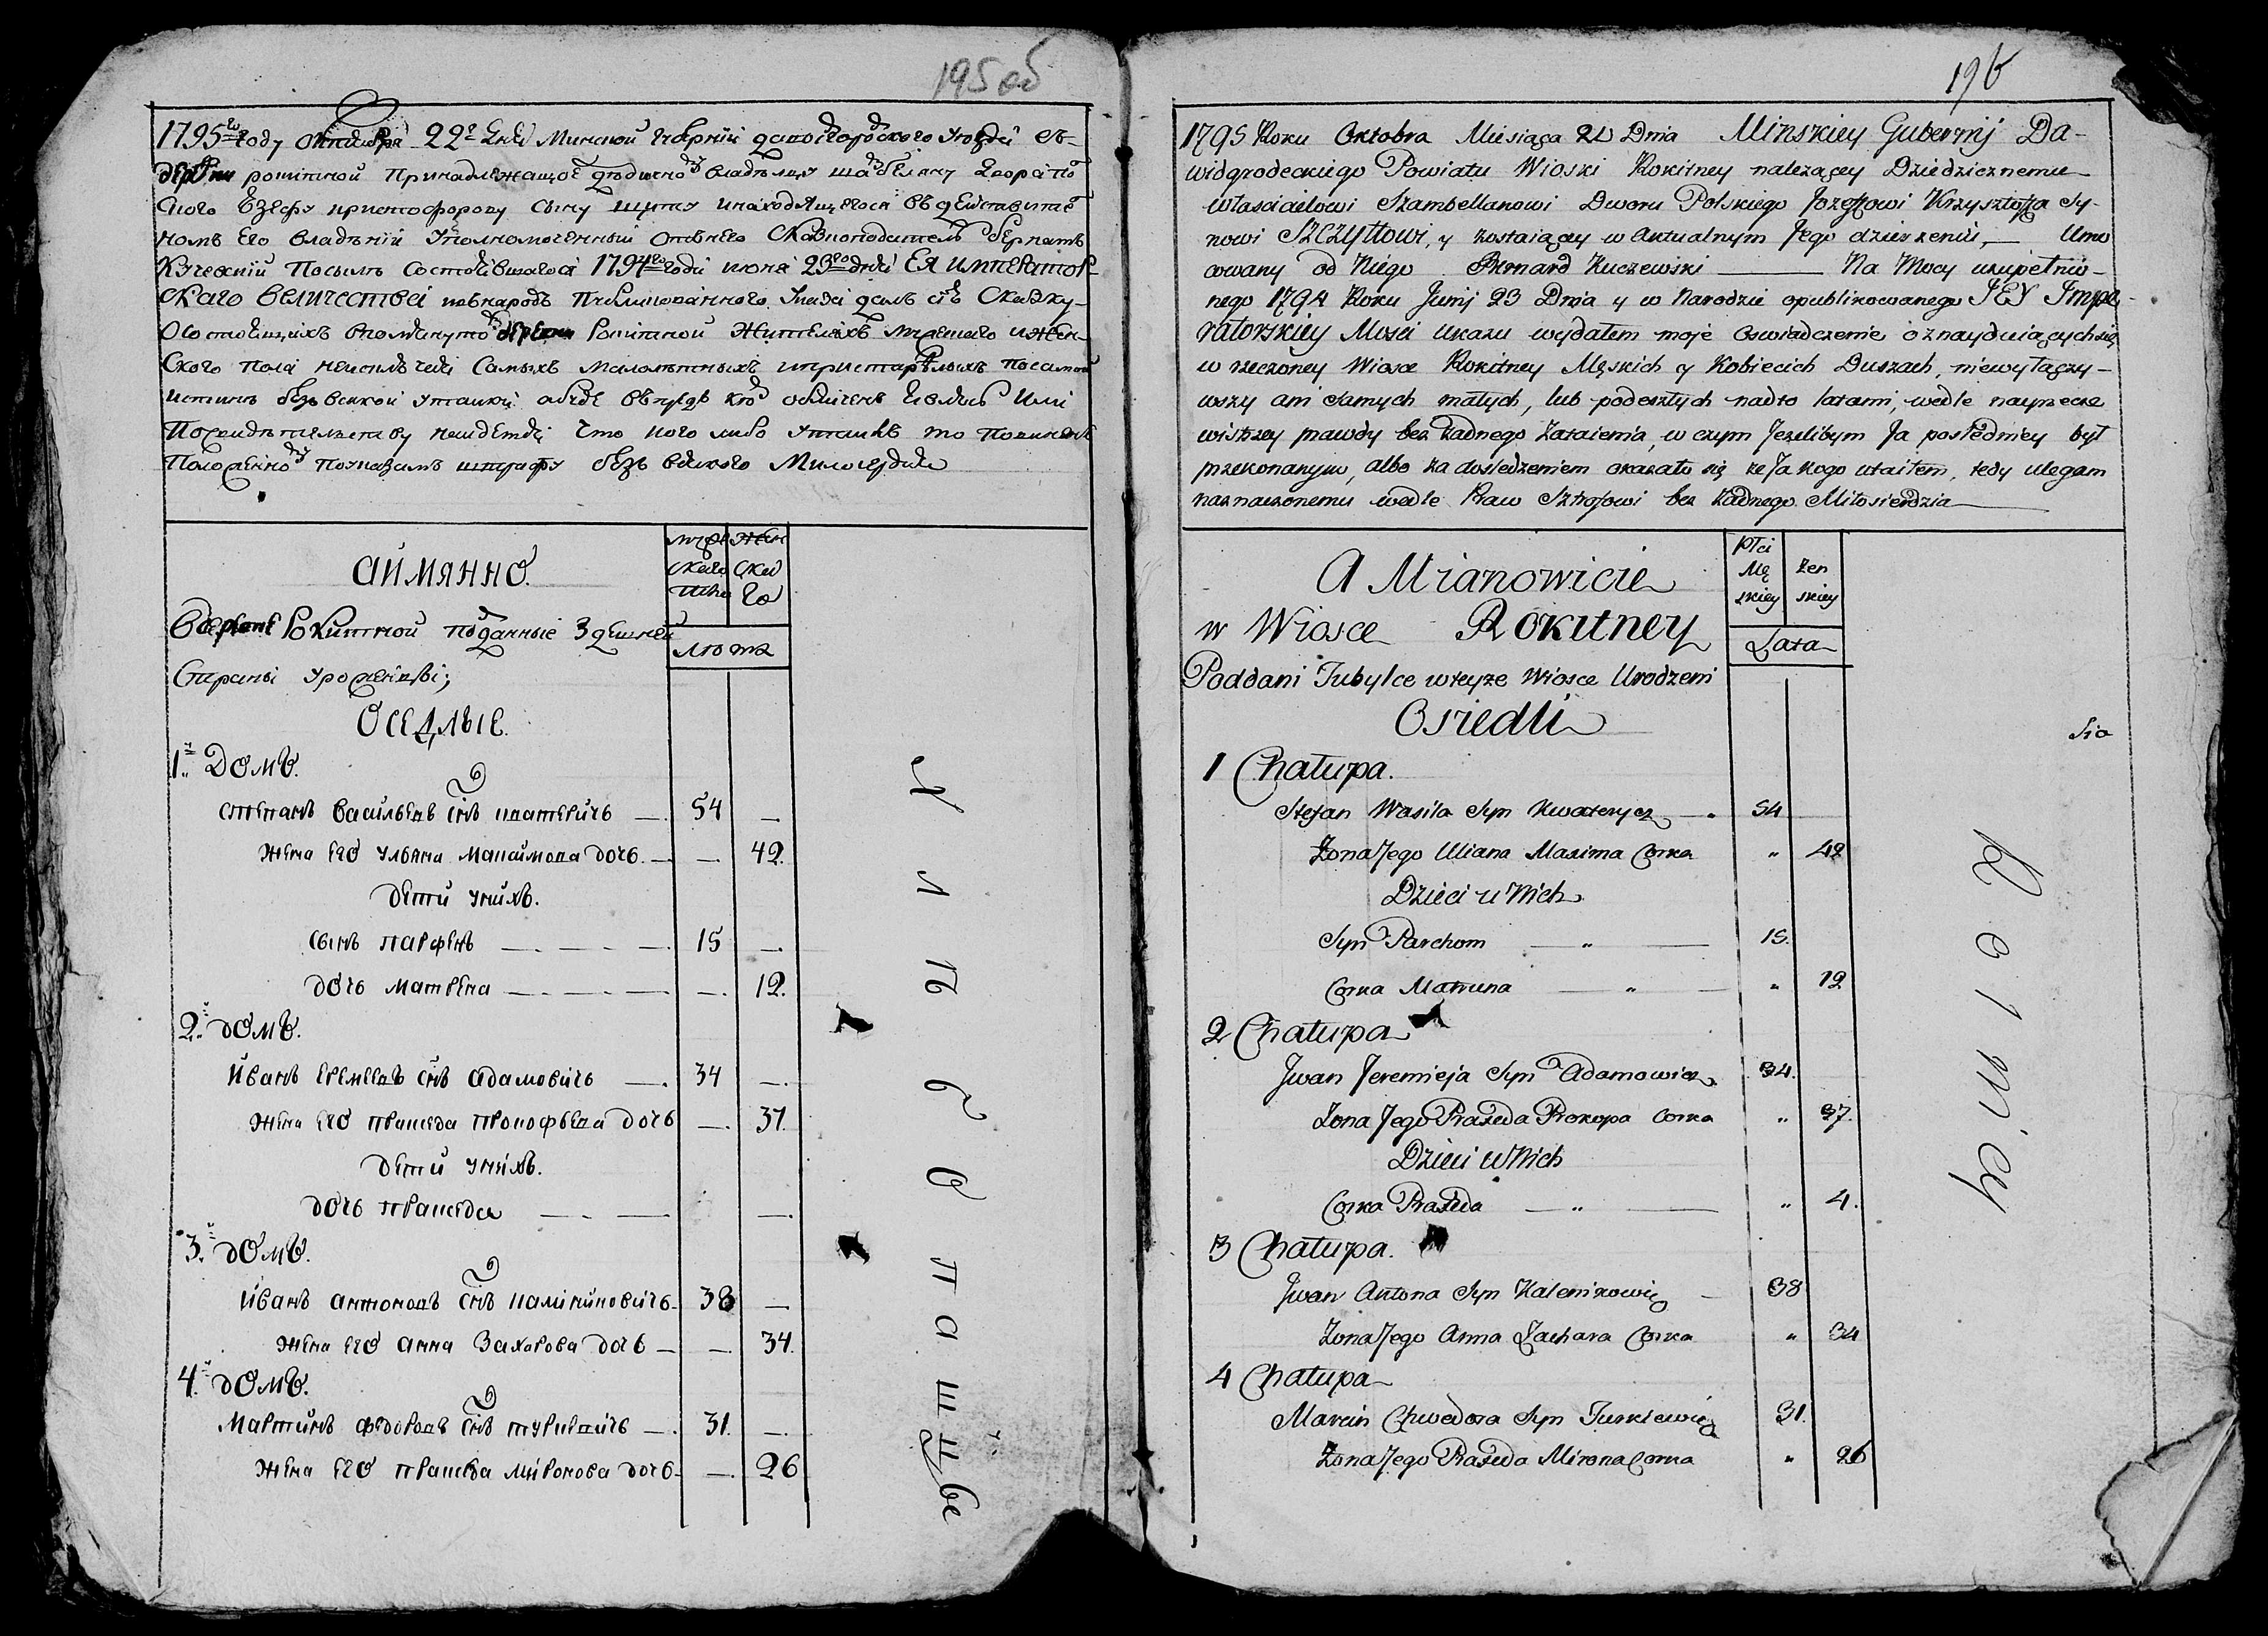 195 об
1795го году октября 22го дня Минской губернии давыдгородского уезда въ
деревни рокитной принадлежащое дедично владелцу шабеляну двора по
ского езефу криштофорову сыну щиту инаходящегося вдействите
номъ его владении уполномоченный отънего сказкоподатель бернатъ
Кучевский Посылъ состоявшагося 1794го года июня 23го дня ЕЯ ИМПЕРАТОР
СКАГО величества внародъ публикованного указа далъ сию сказку
о состоящихъ впомянуто деревни Рокитной жителяхъ мужеского ижен
ского пола неисключая самыхъ малолетныхъ ипрестарелыхъ посамой
истине безъ всякой утайки абуде впредь кто обличенъ явлюсь или
посвидетельству найдется что кого либо утаилъ то повиненъ
положенному поуказамъ штрафу безъ всякого милосердия
аймянно
мужского пола
женского
лета
Вдеревне Рокитной подданные здешней
Стараны уроженцы;
Оседлые.
1й Домъ.
степанъ васильевъ снъ кватеричь — 54 —
жена его ульяна максимова дочь. — — 42.
дети унихъ.
сынъ парфенъ — 15 —
дочь матрена — — 12.
2й домъ.
Иванъ еремеевъ снъ адамовичь — 34 —
жена его пракседа прокофьева дочь — 37.
дети унихъ.
дочь пракседа — —
3й домъ.
Иванъ антоновъ снъ калениковичь 38 —
жена его анна Захорова дочь — — 34.
4й домъ.
Мартинъ федоровъ снъ туркевичь — 31. —
жена его пракседа миронова дочь — — 26
х л п б о п а ш цы
196
1795 Roku Oktobra Miesiąca 22 Dnia Minskiey Gubernij Da-
widgrodeckiego Powiatu Wioski Rokitney należącey Dziedzicznemu
właścicielowi Szambellanowi Dworu Polskiego Jozefowi Krzysztofa Sy-
nowi Szczyttowi, y zostaiącey w aktualnym Jego dzierżeniu, — Umo
cowany od Niego Bernard Kuczewski — Na Mocy uzupełnio-
nego 1794 Roku Junij 23 Dnia y w Narodzie opublikowanego JEY Impe-
ratorskiey Mości Ukazu wydałem moje Oswiadczenie o znayduiących się
w rzeczoney Wiosce Rokitney Męskich y Kobiecich Duszach, niewyłączy-
wszy ani samych małych, lub podeszłych nadto latami, wedle nayrzecze
wistszey prawdy bez żadnego zataienia, w czym Jeżelibym Ja posledniey był
przekonanym, albo za dośledzeniem okazało się że Ja kogo utaiłem, tedy ulegam
naznaczonemu wedle Praw Sztrofowi bez żadnego Miłosierdzia
A Mianowicie
Płci Mę skiey
żen skiey
Lata
w Wiosce Rokitney
Poddani Tubylce wteyże Wiosce Urodzeni
Osiedli
Sio
1 Chałupa.
Stefan Wasila Syn Kwaterycz — 54
Żona Jego Uliana Maxima Corka " 42
Dzieci u Nich
Syn Parchom — " — 15.
Corka Matruna — " — " 12
2 Chałupa
Jwan Jeremieja Syn Adamowicz 34.
Żona Jego Praxeda Prokopa Corka " 37.
Dzieci u Nich
Corka Praxeda — " — " 4.
3 Chałupa.
Jwan Antona Syn Kalenikowicz — 38
Żona Jego Anna Zachara Corka " 34
4 Chałupa
Marcin Chwedora Syn Turkiewicz 31.
Żona Jego Praxeda Mirona Corka " 26
R o l n i c y